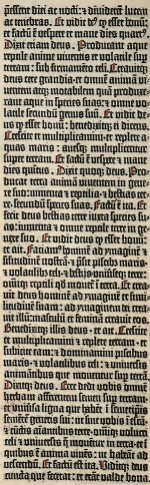 p̄essent diei ac nocti: ⁊ diuiderent lucem
ac tenebras. Et vidit de⁹ ꝙ esset bonū:
et factū ē vespere et mane dies quart⁹.
Dixit etiam deus. Producant aque
reptile anime viuentis et volatile sup
terram: sub firmamēto celi. Creauitq̄
deus cete grandia·et omnē animā vi-
uentem atq̄ motabilem quā produxe-
rant aque in species suas: ⁊ omne vo-
latile secundū genus suū. Et vidit de-
us ꝙ esset bonū: benedixitq̄ ei dicens.
Crescite et multiplicamini·et replete a-
quas maris: auesq̄ multiplicentur
super terram. Et factū ē vespere ⁊ mane
dies quintus. Dixit quoq̄ deus. Pro-
ducat terra animā viuentem in gene-
re suo: iumenta ⁊ reptilia·⁊ bestias ter-
re·secundū species suas. Factū ē ita. Et
fecit deus bestias terre iuxta species su-
as: iumenta ⁊ omne reptile terre in ge-
nere suo. Et vidit deus ꝙ esset bonū:
et ait. Faciam⁹ hominē ad ymaginē ⁊
similitudinē nostrā·⁊ p̄sit piscib⁹ maris·
⁊ volatilib⁹ celi·⁊ bestijs·uniūseq̄ terre:
omniq̄ reptili qd̄ mouet̄ ī terra. Et crea-
uit deus hominē ad ymaginē et simi-
litudinē suam: ad ymaginem dei crea-
uit illū·masculū et feminā creauit eos.
Benedixitq̄ illis deus·et ait. Crescite
et multiplicamini ⁊ replete terram·et
subicite eam: ⁊ dominamini piscibus
maris·⁊ volatilibus celi: ⁊ uniuersis
animātibus que mouentur sup terrā.
Dixitq̄ deus. Ecce dedi vobis omnē
herbam afferentem semen sup terram·
et vniūsa ligna que habēt ī semetipīs
sementē generis sui: ut sint vobis ī escā·
⁊ cūctis aīantibus terre·omniq̄ volucri
celi ⁊ uniuersis q̄ mouētur in terra·et ī
quibus ē anima viuēs: ut habeāt ad
vescendū. Et factū est ita. Viditq̄ deus
cuncta que fecerat: et erāt valde bona.